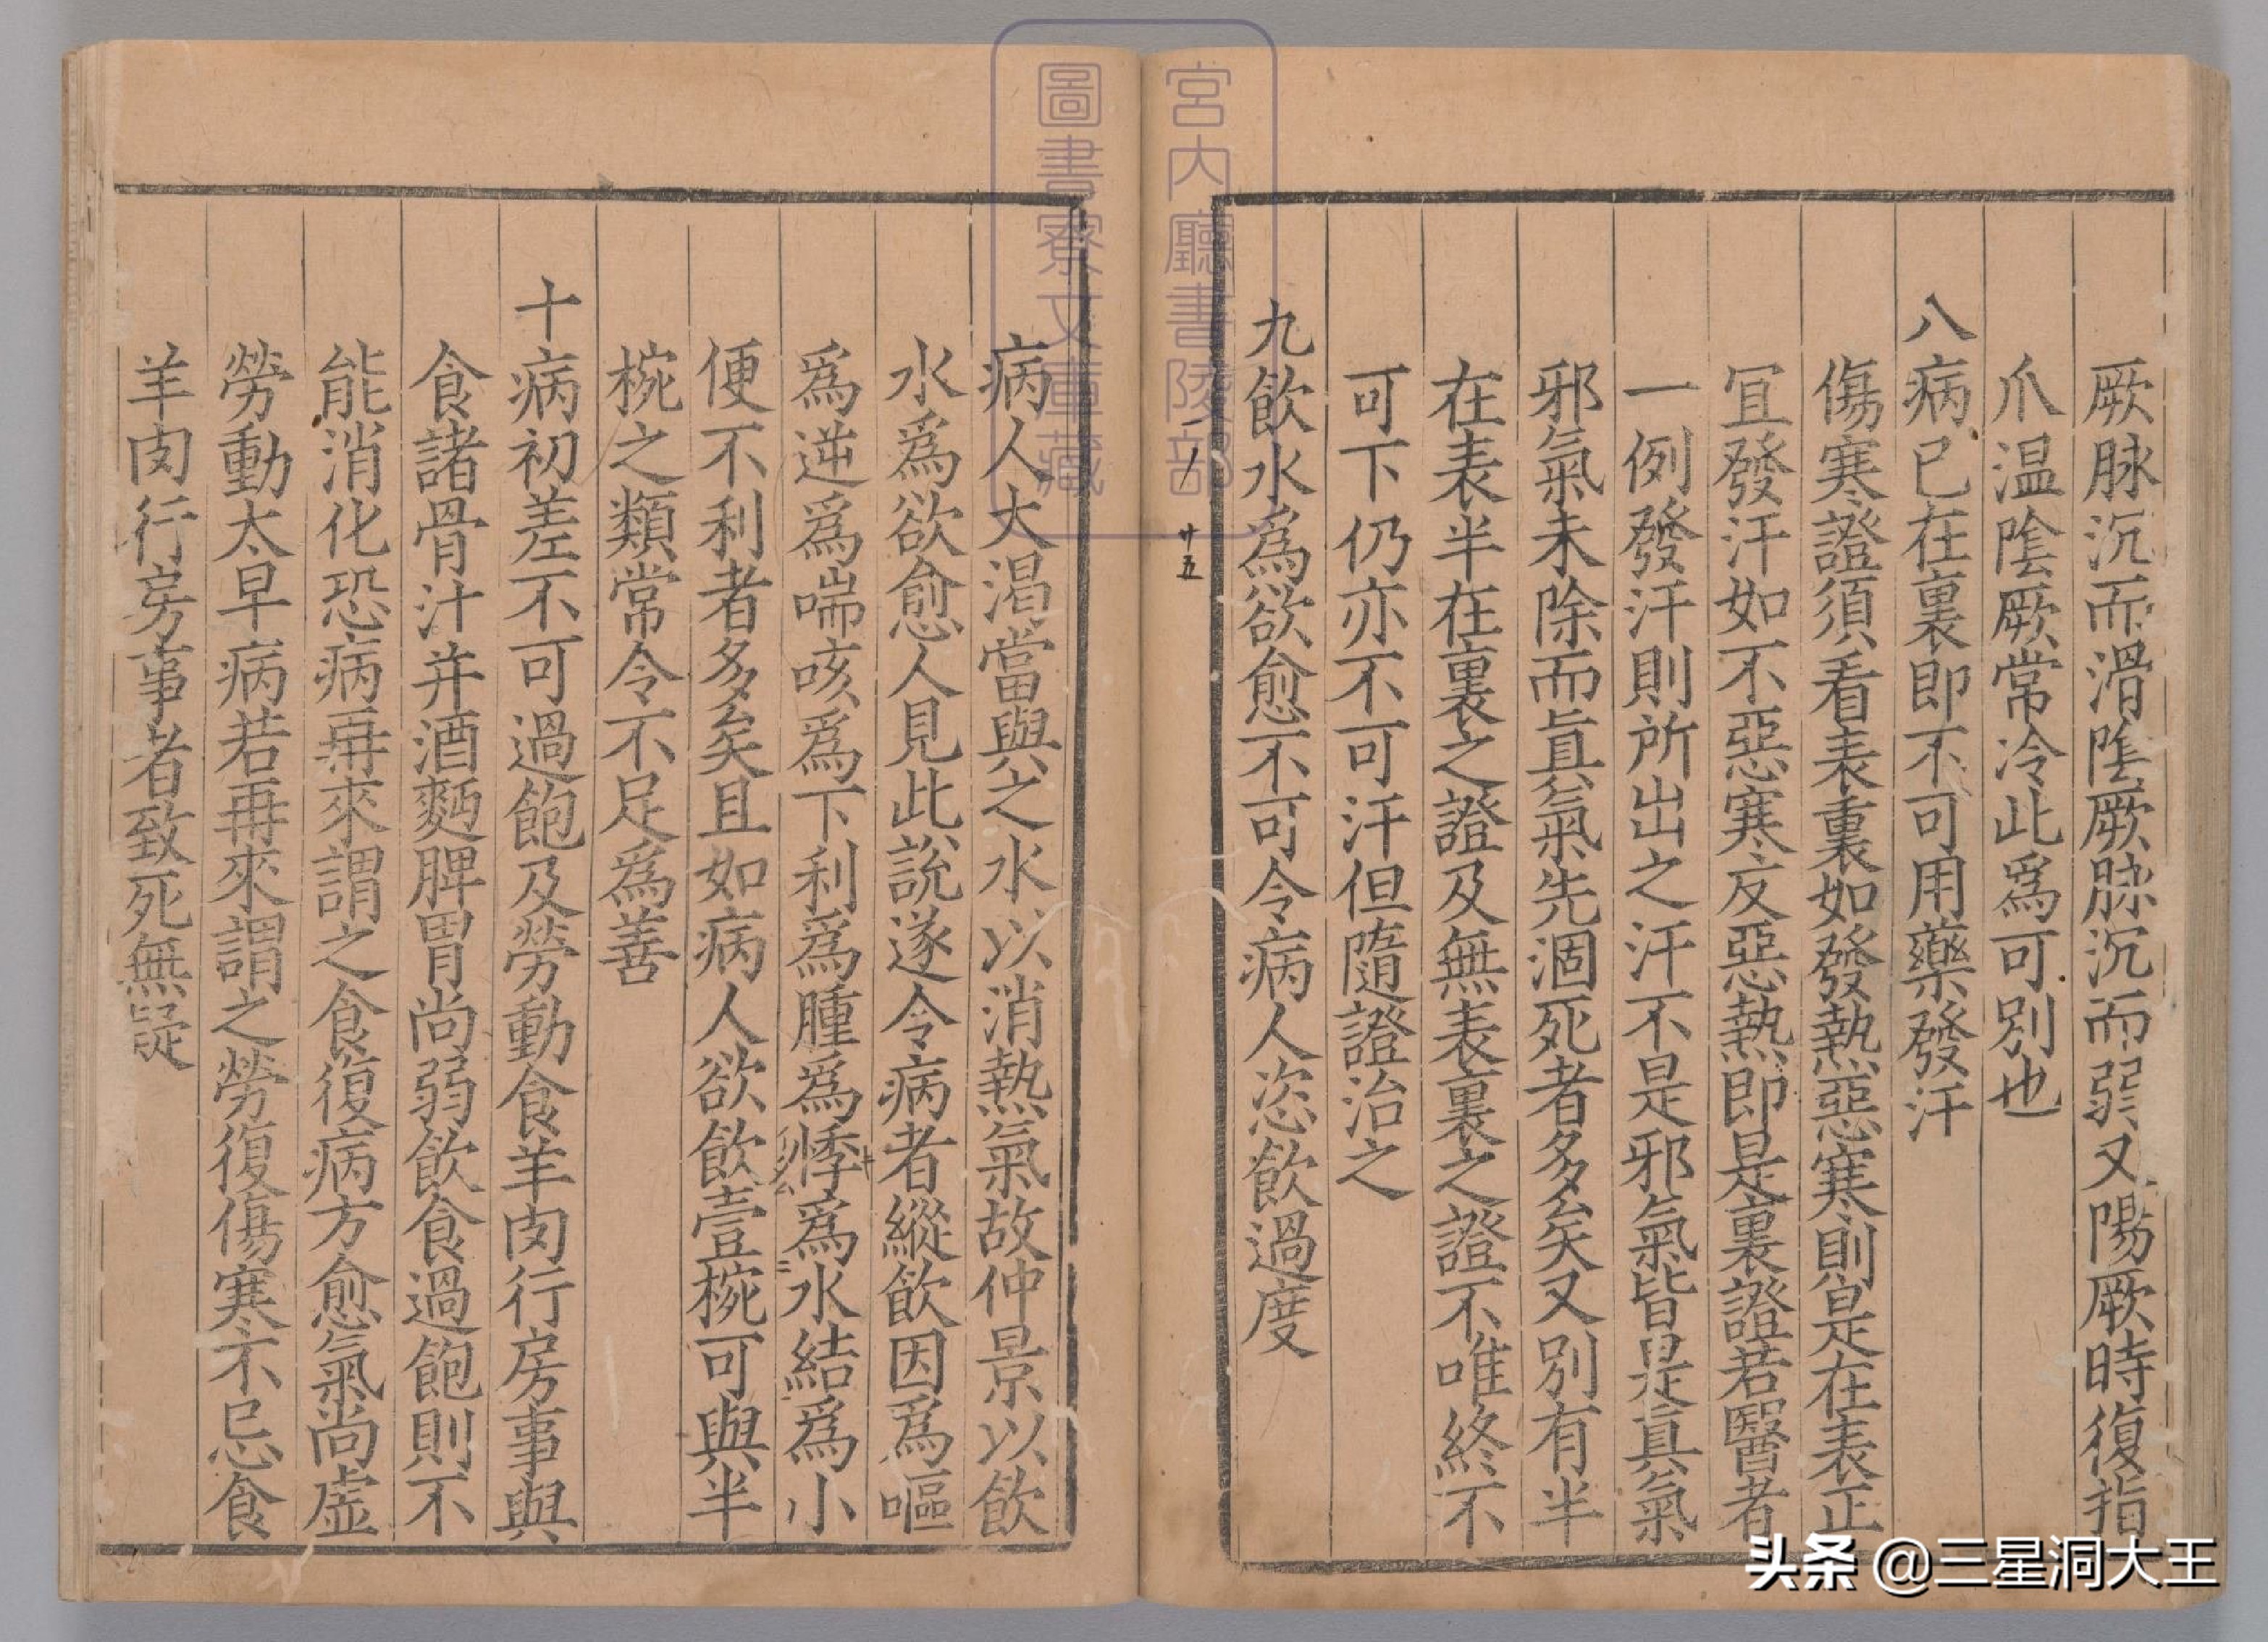 厥脉沉而滑陰厥脉沉而弱又陽厥時復指
爪温陰厥常冷此爲可別也
八病已在裏即不可用藥發汗
傷寒證須看表裏如發熱惡寒則是在表正
冝發汗如不惡寒反惡熱即是裏證若醫者
一例發汗則所出之汗不是邪氣皆是真氣
邪氣未除而眞氣先涸死者多矣又別有半
在表半在裏之證及無表裏之證不唯終不
可下仍亦不可汗但隨證治之
九飲水爲欲愈不可令病人恣飲過度
廿五
病人大渴當與之水以消熱氣故仲景以飲
水爲欲愈人見此説遂令病者縱飲因爲嘔
爲逆爲喘咳爲下利爲腫爲悸爲水結爲小
便不利者多矣且如病人欲飲壹椀可與半
椀之類常令不足爲善
十病初差不可過飽及勞動食羊肉行房事與
食諸骨汁并酒麪脾胃尚弱飲食過飽則不
能消化恐病再來謂之食復病方愈氣尚虛
勞動太早病若再來謂之勞復傷寒不忌食
羊肉行房事者致死無疑
宮内廳書陵部
圖書寮文庫藏
头条 @三星洞大王